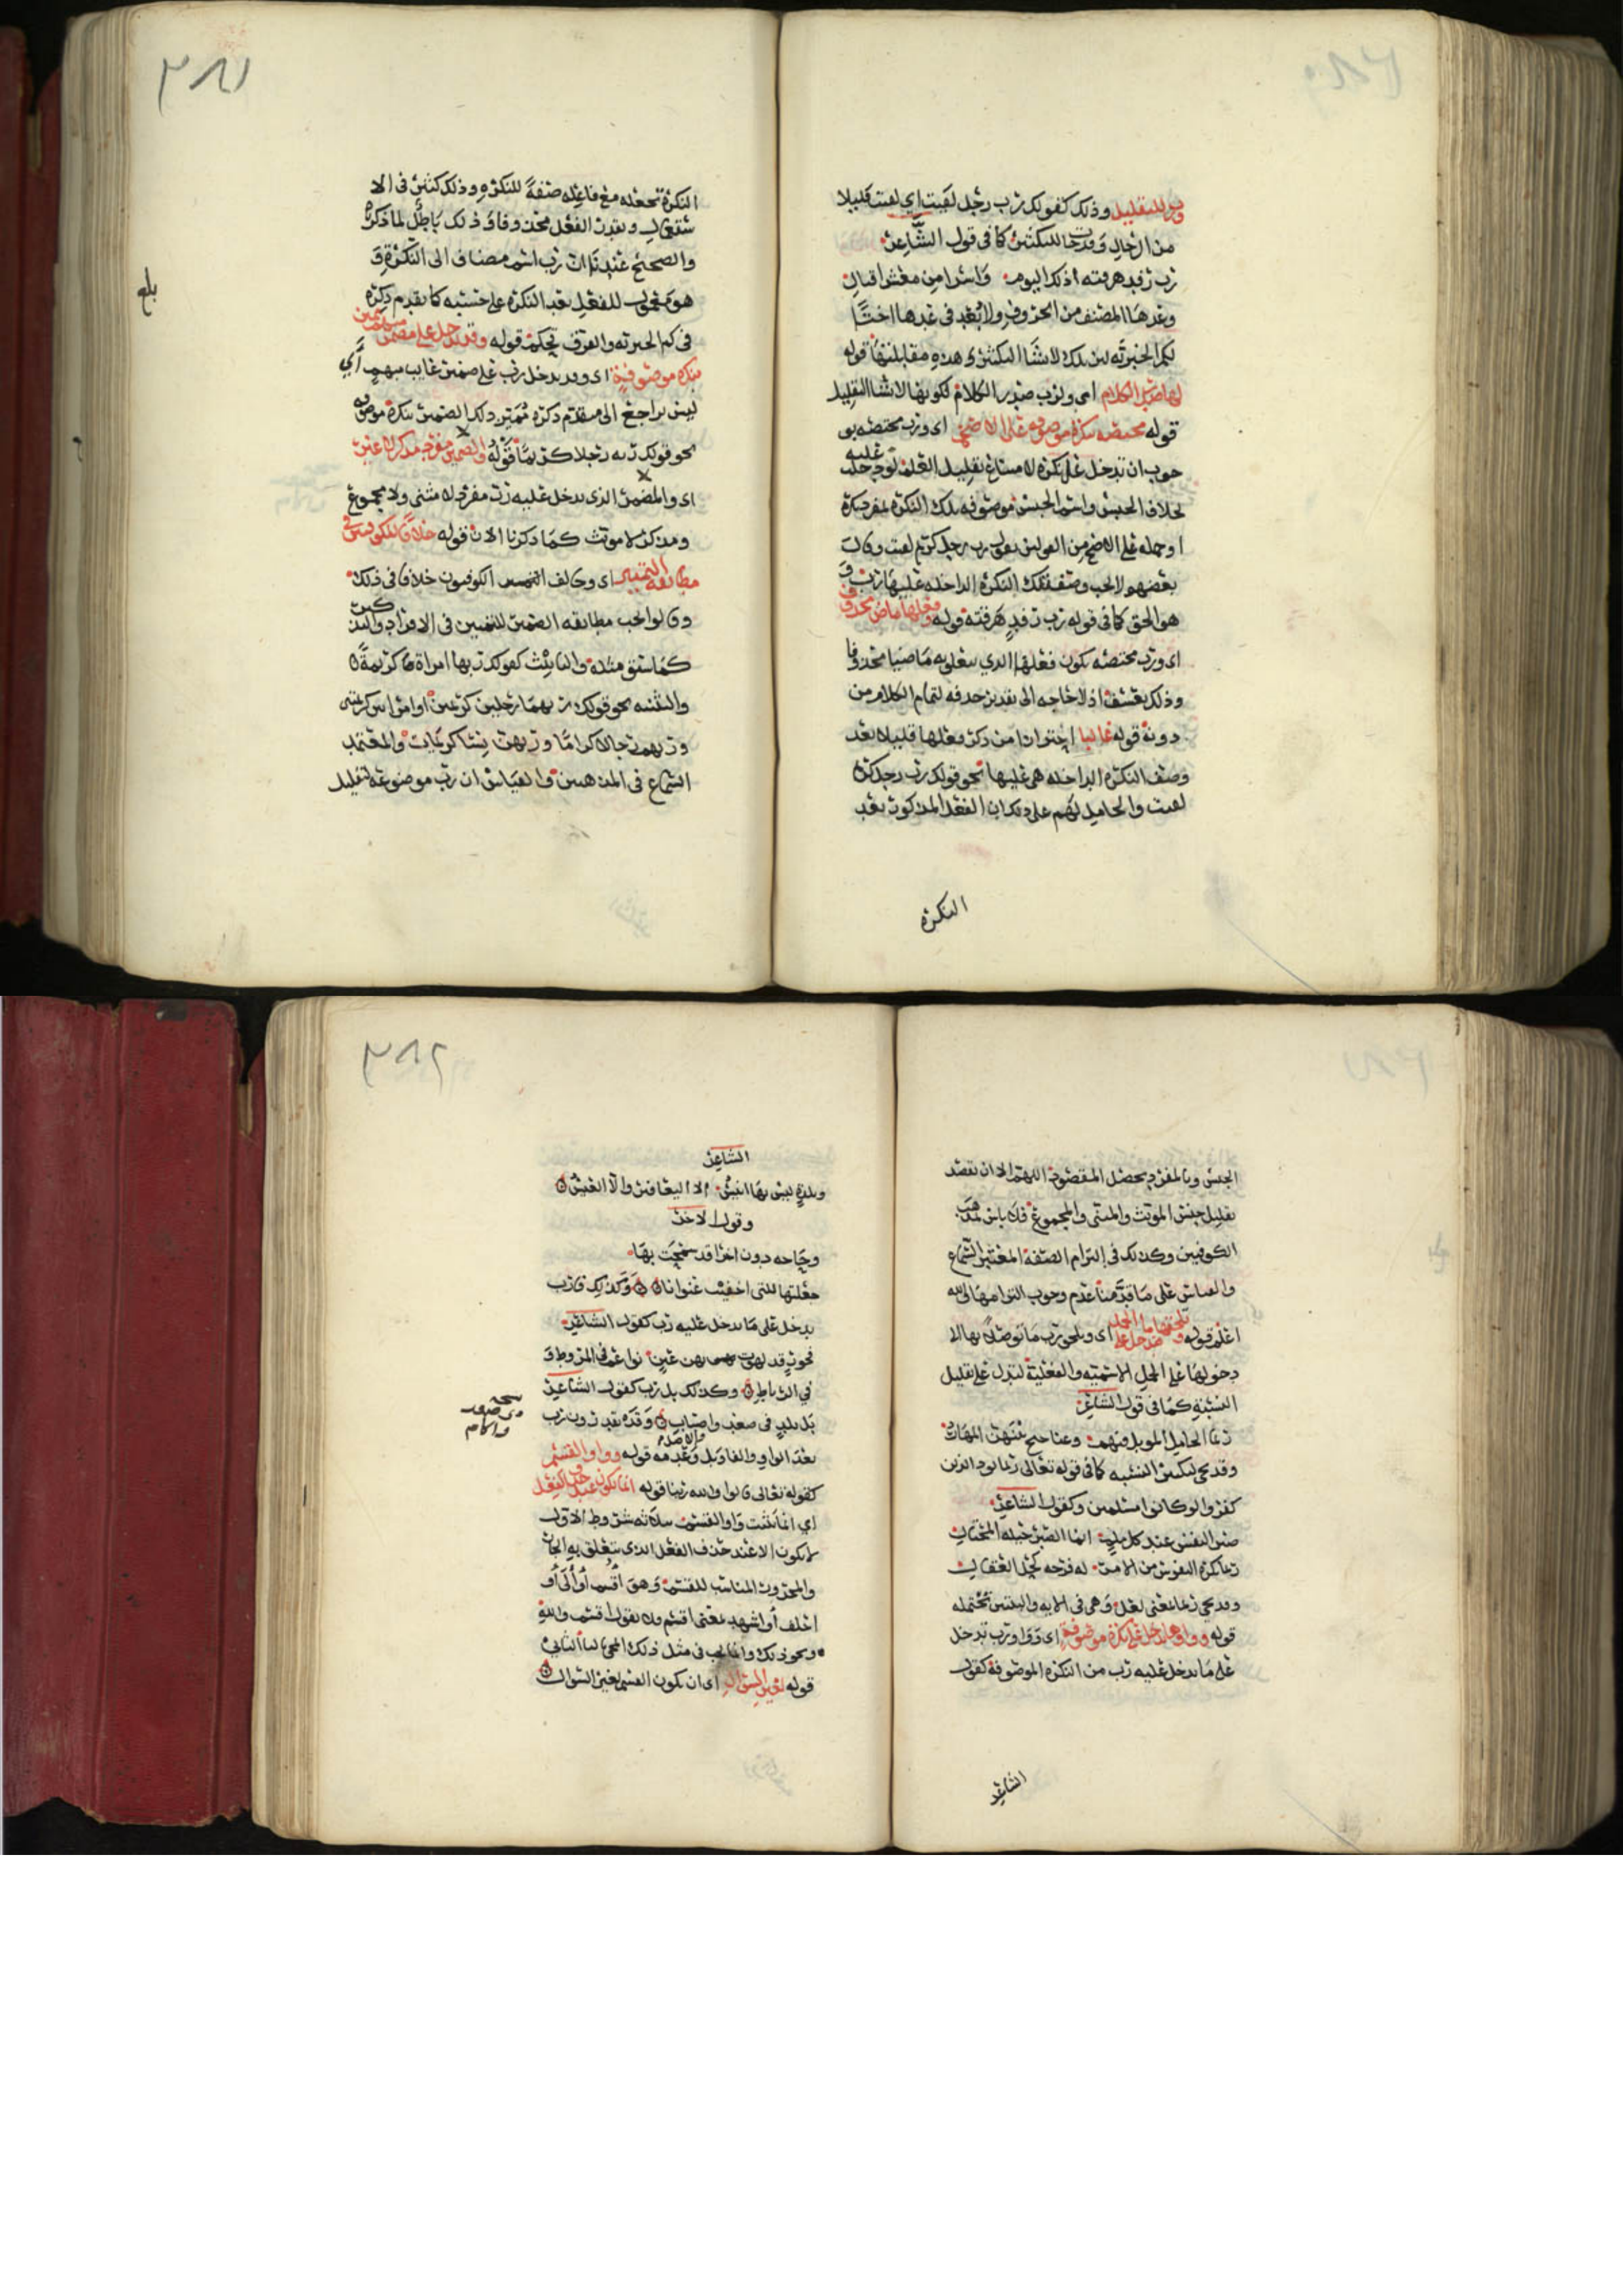 ورب للتقليل وذلك كقولك رب رجل لقيت اي لقيت قليلا
من الرجال وقد جا للتكثير كما في قول الشاعر
رب رفد هرقته ذلك اليوم واسرا من معشر اقيال
وعدها المصنف من الحروف ولا بعد في عدها اختا
لكم الخبرية لان تلك لانشا التكثير وهذه مقابلتها قوله
لها صدر الكلام اي ولرب صدر الكلام لكونها لانشا التقليل
قوله مختصه بنكرة موصوفه على الاصح اي ورب مختصه بو
جوب ان تدخل على نكره
بخلاف الجنس واسم الجنس موصوفه تلك النكرة بمفرد
او جمله على الاصح من القولين تقول رب رجل كريم لقيت وقال
بعضهم لا يجب وصف تلك النكرة الداخله عليها رب و
هو الحق كما في قوله رب رفد هرقته قوله وفعلها ماض محذوف
اي ورب مختصه بكون فعلها الذي تتعلق به ماضيا محذوفا
وذلك تعسف اذ لا حاجه الى تقدير حذفه لتمام الكلام من
دونه قوله غالبا احترازا من ذكر فعلها قليلا بعد
وصف النكره الداخله هي عليها نحو قولك رب رجل كريم
لقيت والحامل لهم على ذلك ان الفعل المذكور بعد
النكره
٣٨١
النكرة تجعله مع فاعله صفة للنكره وذلك كثير في الا
ستعمال وتقدير الفعل محذوفا وذلك باطل لما ذكر
والصحيح عندنا ان رب اسم مضاف الى النكرة و
هو معمول للفعل بعد النكره على حسبه كما تقدم ذكره
في كم الخبريه والفرق تحكم قوله وقد تدخل على مضمر مبهم مميز
بنكره موصوفة اي وقد تدخل رب على ضمير غايب مبهم اي
ليس براجع الى متقدم ذكره مميز ذلك الضمير بنكرة موصوفه
نحو قولك ربه رجلا كريما قوله والضمير مفرد مذكر
اي والمضمر الذي تدخل عليه رب مفرد لا مثنى ولا مجموع
ومذكر لا مونث كما ذكرنا الان قوله خلافا للكوفيين في
مطابقة التمييز اي وخالف الكوفيون خلافا في ذلك
وقالوا يجب مطابقه الضمير للتمييز في الافراد والتذكير
كما سبق مثله والتانيث كقولك ربها امراة كريمة
والتثنيه نحو قولك ربهما رجلين كريمين او امراتين كريمتين
وربهم رجالا كراما وربهن نسا كريمات والمعتمد
السماع في المذهبين والقياس ان رب موضوعه لتقليل
بلغ
الجنس وبالمفرد يحصل المقصود اللهم الا ان نقصد
تقليل جنس المونث والمثنى والمجموع فلا باس بمذهب
الكوفيين وكذلك في التزام الصفة المعتبر السماع
والقياس على ما قدمنا عدم وجوب التزامها والله
اعلم قوله وتلحقها ما فتدخل على الجمل اي وتلحق رب ما توصلا بها الى
دخولها على الجمل الاسميه والفعلية لتدل على تقليل
النسبة كما في قول الشاعر
ربما الجامل المؤبل فيهم وعناجيج بينهن المهار
وقد تجي لتكثير النسبه كما في قوله تعالى ربما يود الذين
كفروا لو كانوا مسلمين وكقول الشاعر
صبر النفس عند كل ملم انما الصبر حيله المحتال
ربما تكره النفوس من الامر له فرجه كحل العقال
وقد تجي ربما بمعنى لعل وهي في الايه والبيتين تحتمله
قوله وواوها تدخل على نكره موصوفة اي وواو رب تدخل
على ما تدخل عليه رب من النكره الموصوفة كقول
الشاعر
٣٨٢
الشاعر
وبلدة ليس بها انيس الا اليعافير والا العيس
وقول الاخر
وحاجه دون اخرى قد سنحت بها
جعلتها للتي اخفيت عنوانا وكذلك فا رب
تدخل على ما تدخل عليه رب كقول الشاعر
فحور قد لهوت بهن عين نواعم في المروط و
في الرياط وكذلك بل رب كقول الشاعر
بل بلد ذي صعد واصباب وقد تقدر رب
بعد الواو والفا وبل وعدمه قوله وواو القسم
كقوله تعالى قالوا والله ربنا قوله انما تكون عند حذف الفعل
اي انما تثبت واو القسم بثلاثه شروط الاول
لا تكون الا عند حذف الفعل الذي يتعلق به الجار
والمجرور المناسب للقسم وهو اقسم او آلي او
احلف او اشهد بمعنى اقسم ولا تقول اقسم والله
ونحو ذلك وانما يجب في مثل ذلك المجي بالبا الثاني
قوله لغير السوال اي ان يكون القسم لغير السوال